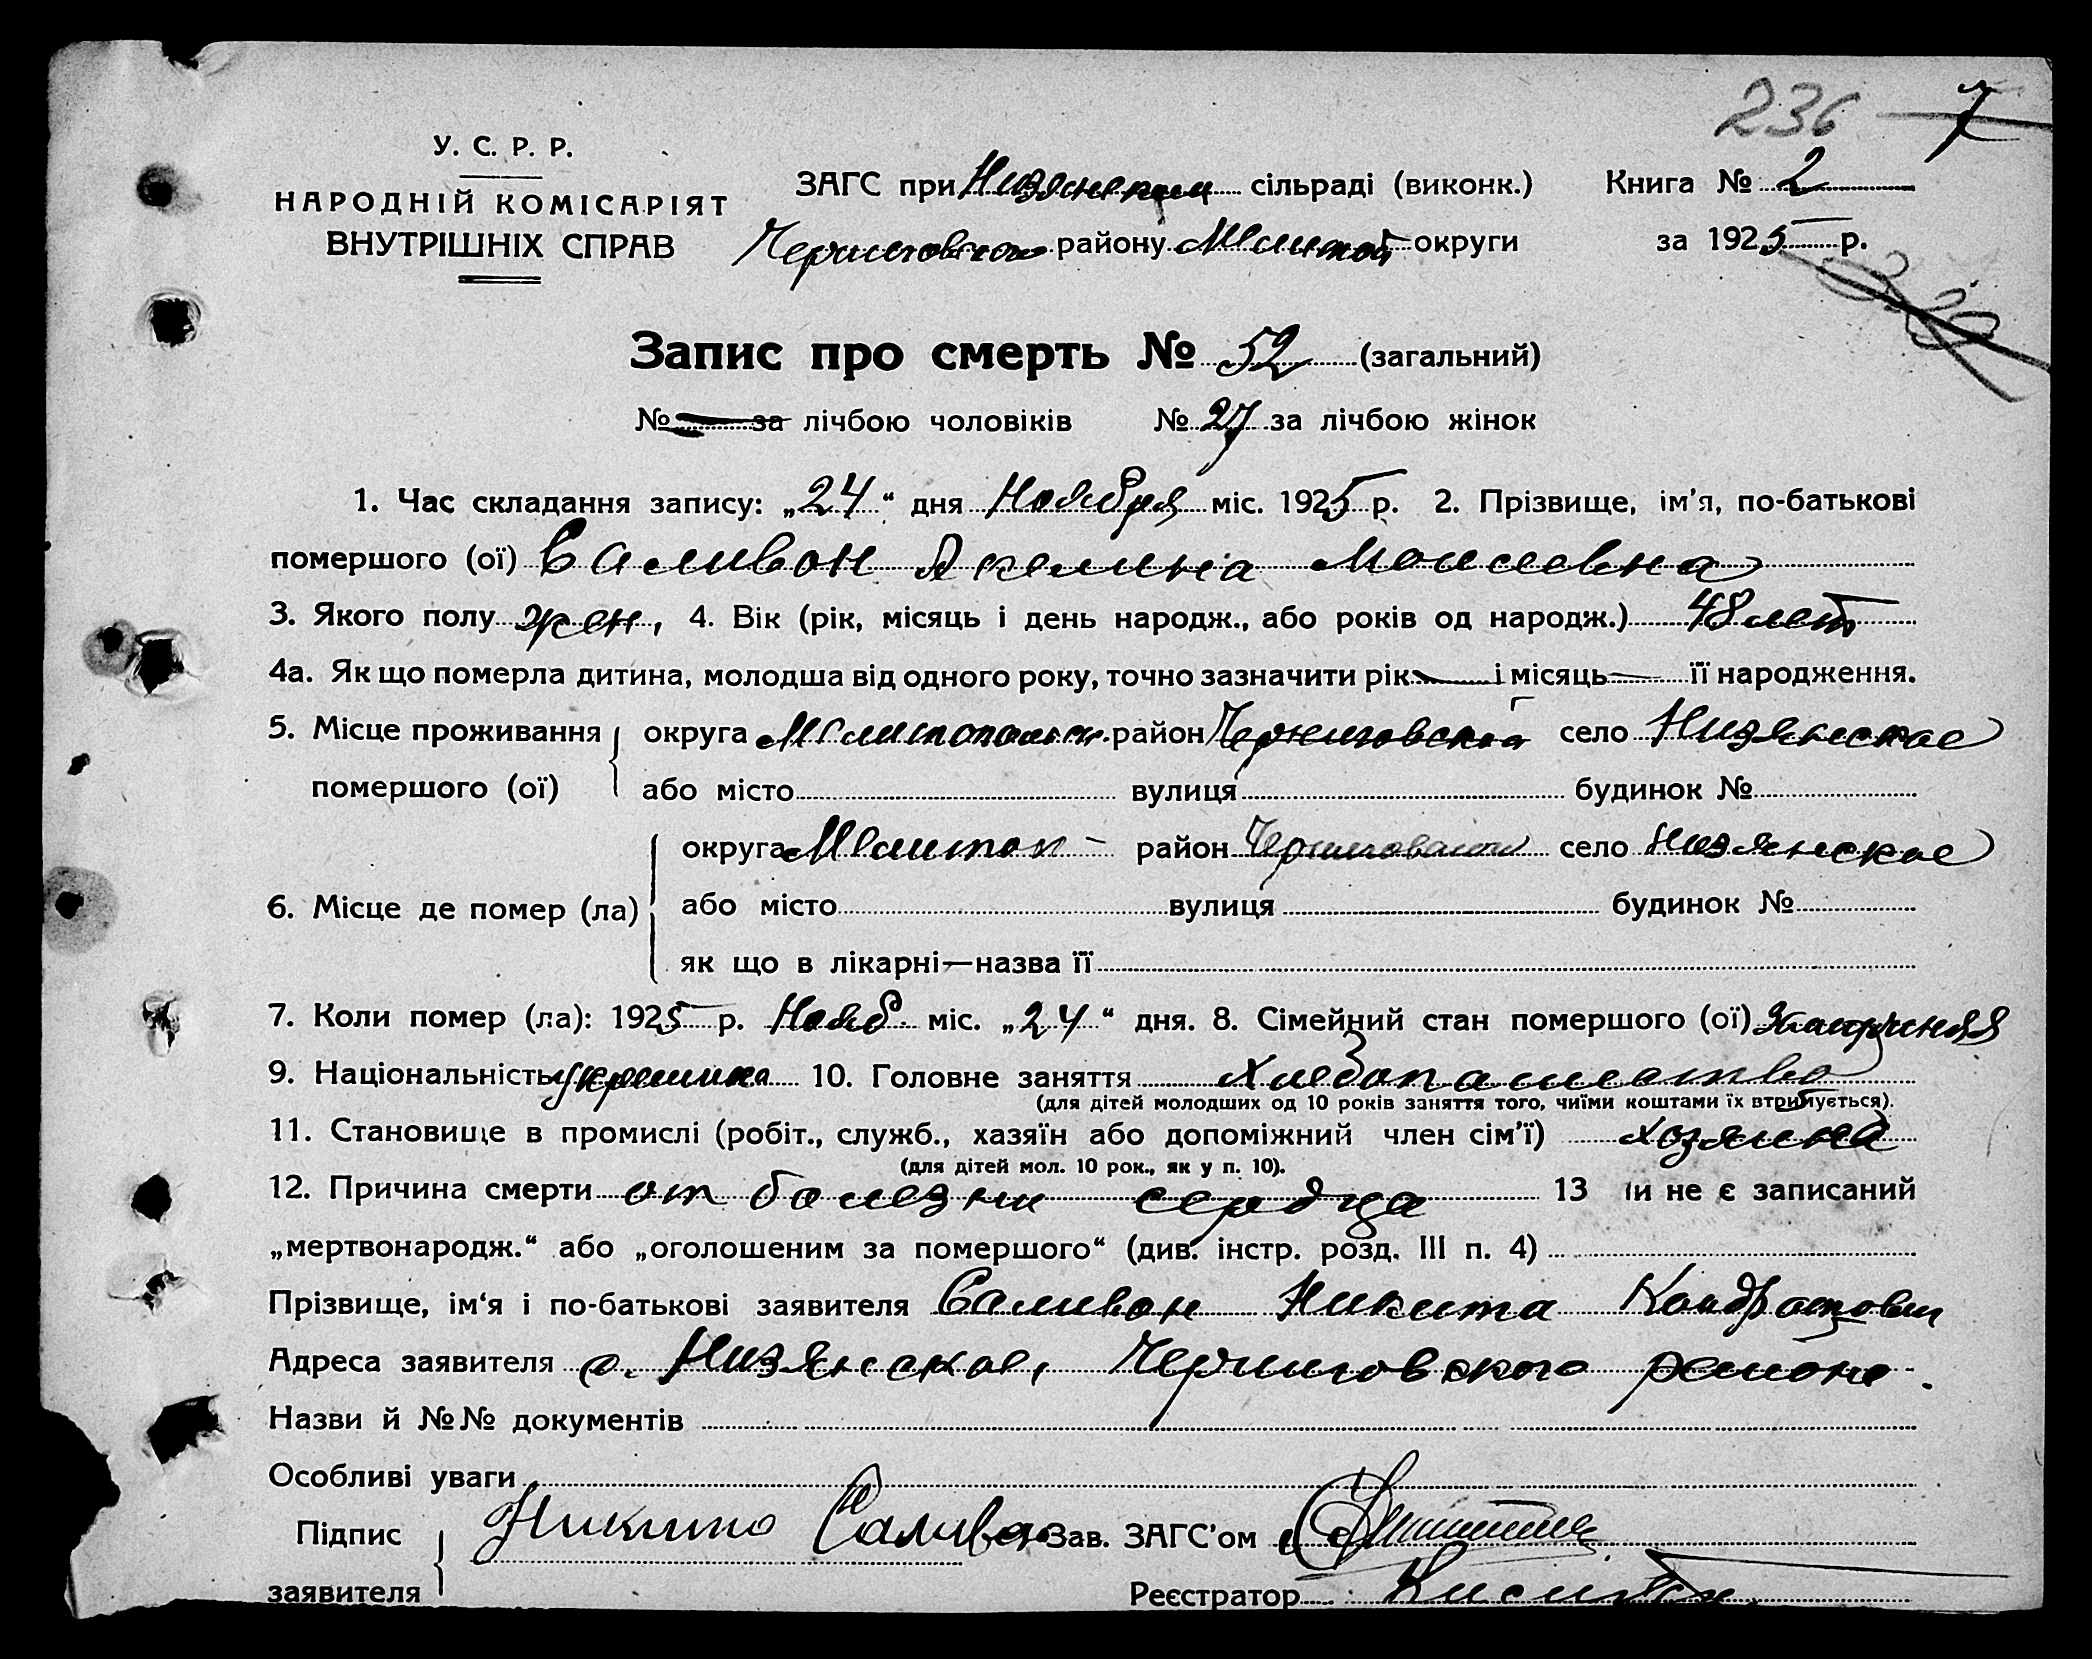 236 7
У. С. Р. Р.
НАРОДНІЙ КОМІСАРІЯТ
ВНУТРІШНІХ СПРАВ
ЗАГС при Низянском сільраді (виконк.) Книга № 2
Черниговского району Мелитоп округи за 1925 р.
Запис про смерть № 52 (загальний)
№ за лічбою чоловіків № 27 за лічбою жінок
1. Час складання запису: „24“ дня Ноября міс. 1925 р. 2. Прізвище, ім’я, по-батькові
помершого (ої) Саливон Акелина Моисеевна
3. Якого полу жен, 4. Вік (рік, місяць і день народж., або років од народж.) 48 лет
4а. Як що померла дитина, молодша від одного року, точно зазначити рік і місяць її народження.
5. Місце проживання округа Мелитопольск район Черниговский село Низянское
помершого (ої) або місто вулиця будинок №
округа Мелитоп район Черниговский село Низянское
6. Місце де помер (ла) або місто вулиця будинок №
як що в лікарні—назва її
7. Коли помер (ла): 1925 р. Нояб міс. „24“ дня. 8. Сімейний стан помершого (ої) Замужняя
9. Національність украинка 10. Головне заняття Хлебопашество
(для дітей молодших од 10 років заняття того, чиїми коштами їх втримується).
11. Становище в промислі (робіт., служб., хазяїн або допоміжний член сім’ї) хозяйка
(для дітей мол. 10 рок., як у п. 10).
12. Причина смерти от болезни сердца 13 и не є записаний
„мертвонародж.“ або „оголошеним за помершого“ (див. інстр. розд. III п. 4)
Прізвище, ім‘я і по-батькові заявителя Саливон Никита Кондратович
Адреса заявителя с. Низянское, Черниговского района.
Назви й №№ документів
Особливі уваги
Підпис Никита Саливон Зав. ЗАГС’ом
заявителя Реєстратор